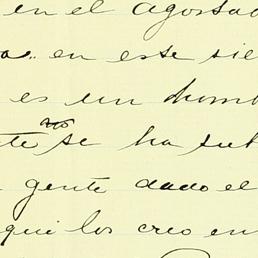 en el agosta
en este sie
es un homb
te se ha sub
gente dado el
qui los creo en